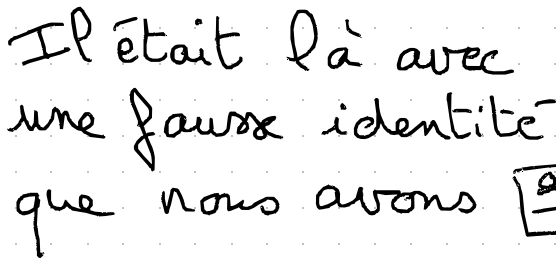 Il était là avec
une fausse identité
que nous avons